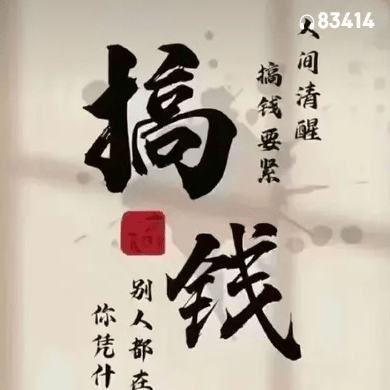 83414
人间清醒
搞钱要紧
搞
钱
别人都在
你凭什